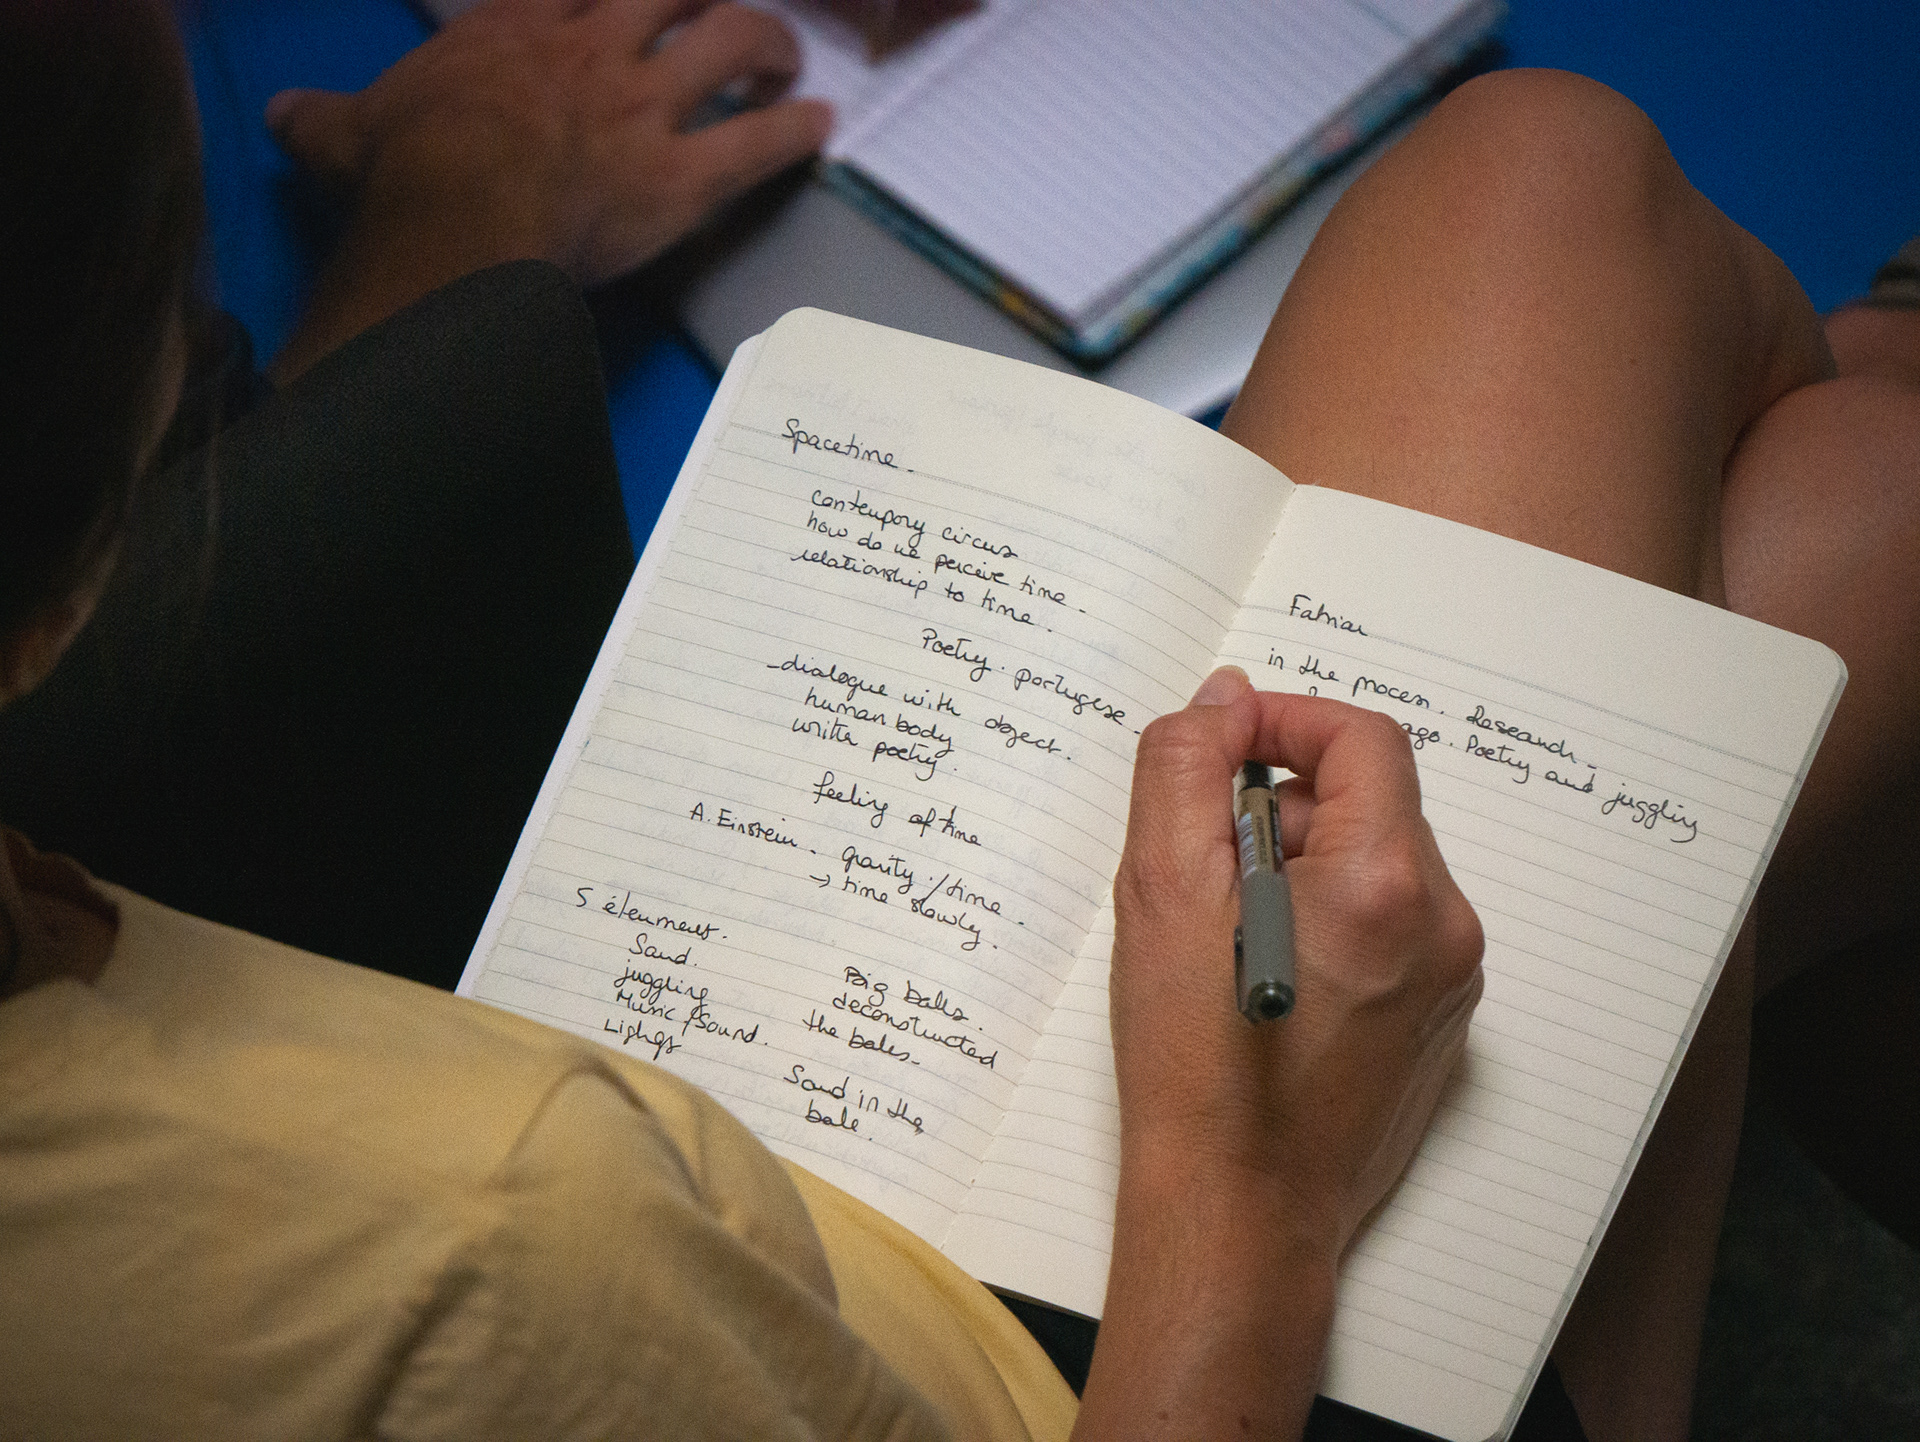 Spacetime.
contempory circus
how do we perceive time.
relationship to time.
Poetry. portugese.
-dialogue with object.
human body
write poetry.
feeling of time
A. Einstein. gravity./time.
→ time slowly.
5 élements.
Sand.
juggling
Music / Sound.
Big balls.
deconstructed
the bales.
Sand in the
bale.
in the process. Research.
ago. Poetry and juggling